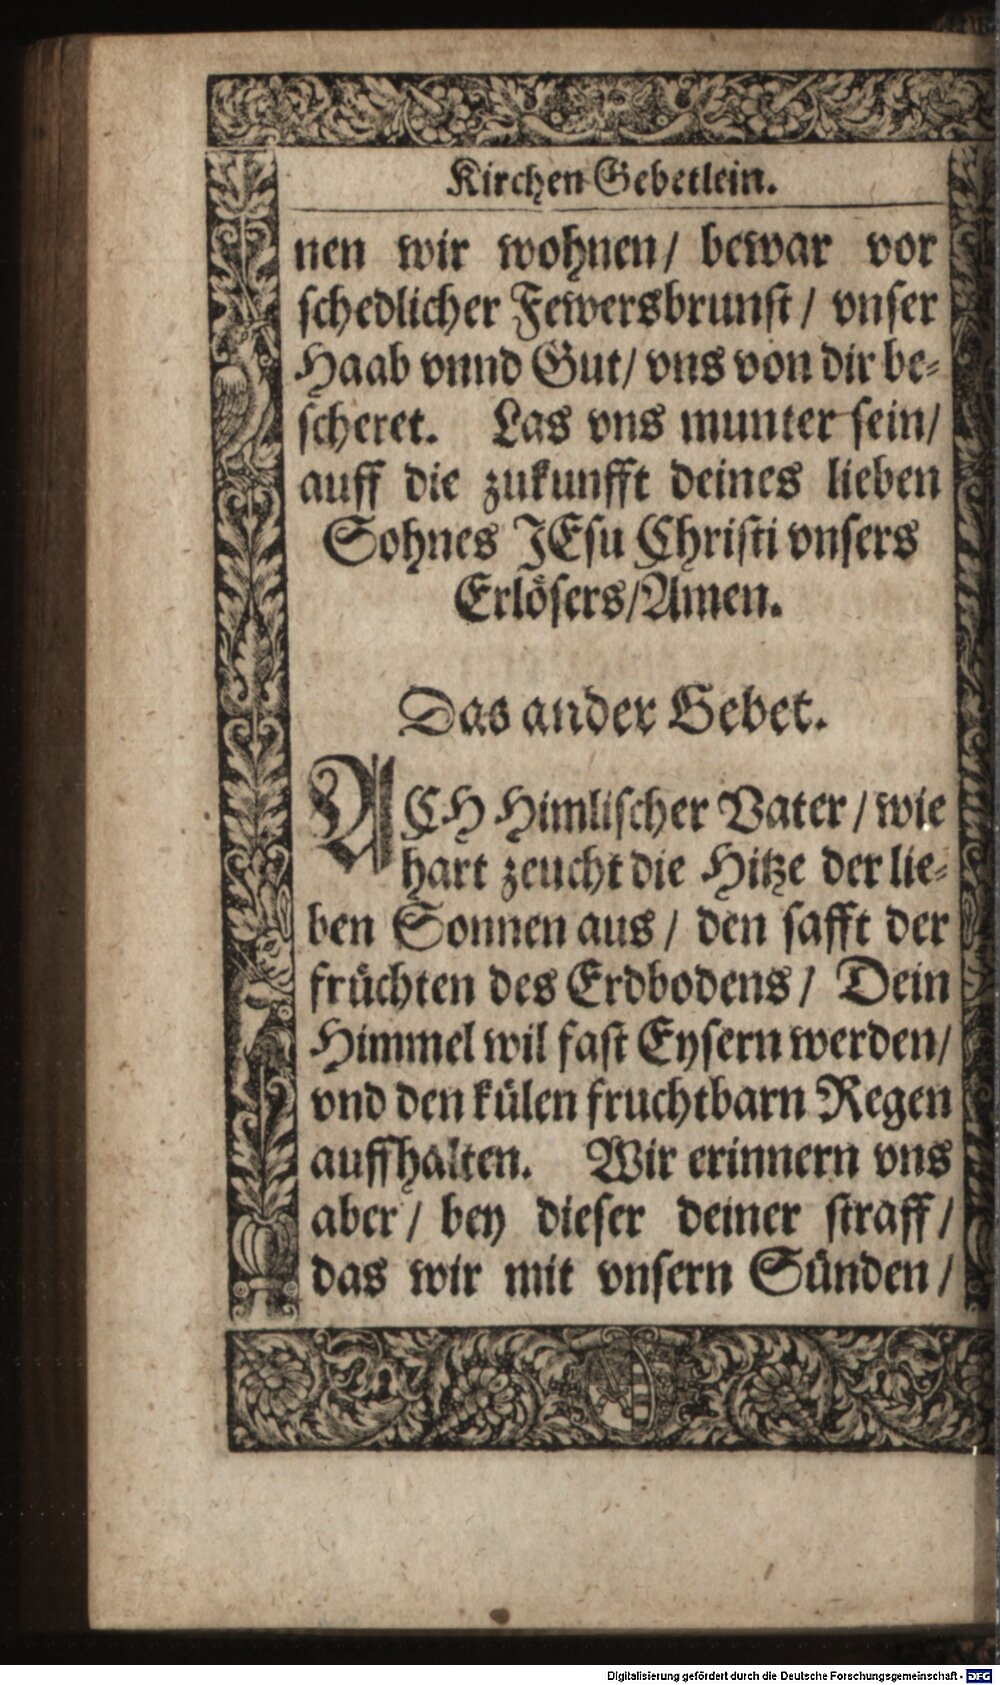 Kirchen Gebetlein.
nen wir wohnen/ bewar vor
schedlicher Fewersbrunst/ vnser
Haab vnnd Gut/ vns von dir be-
scheret. Las vns munter sein/
auff die zukunfft deines lieben
Sohnes JEsu Christi vnsers
Erlösers/Amen.
Das ander Gebet.
ACH Himlischer Vater/ wie
hart zeucht die Hitze der lie-
ben Sonnen aus/ den safft der
früchten des Erdbodens/ Dein
Himmel wil fast Eysern werden/
vnd den külen fruchtbarn Regen
auffhalten. Wir erinnern vns
aber/ bey dieser deiner straff/
das wir mit vnsern Sünden/
Digitalisierung gefördert durch die Deutsche Forschungsgemeinschaft - DFG